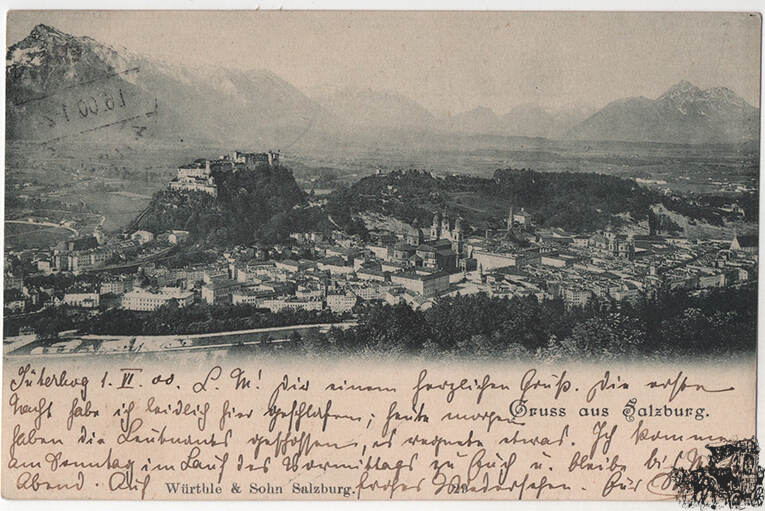 Jüterbog 1. VI. 00. L. M! Dir einem herzlichen Gruß. Die erste
Nacht habe ich leidlich hier geschlafen; heute morgen
Gruss aus Salzburg.
haben die Leutnants geschossen, es regnete etwas. Ich komme
am Sonntag im Lauf des Vormittags zu Euch u. bleibe bis
Abend. Auf frohes Wiedersehen. Euer
Würthle & Sohn Salzburg.